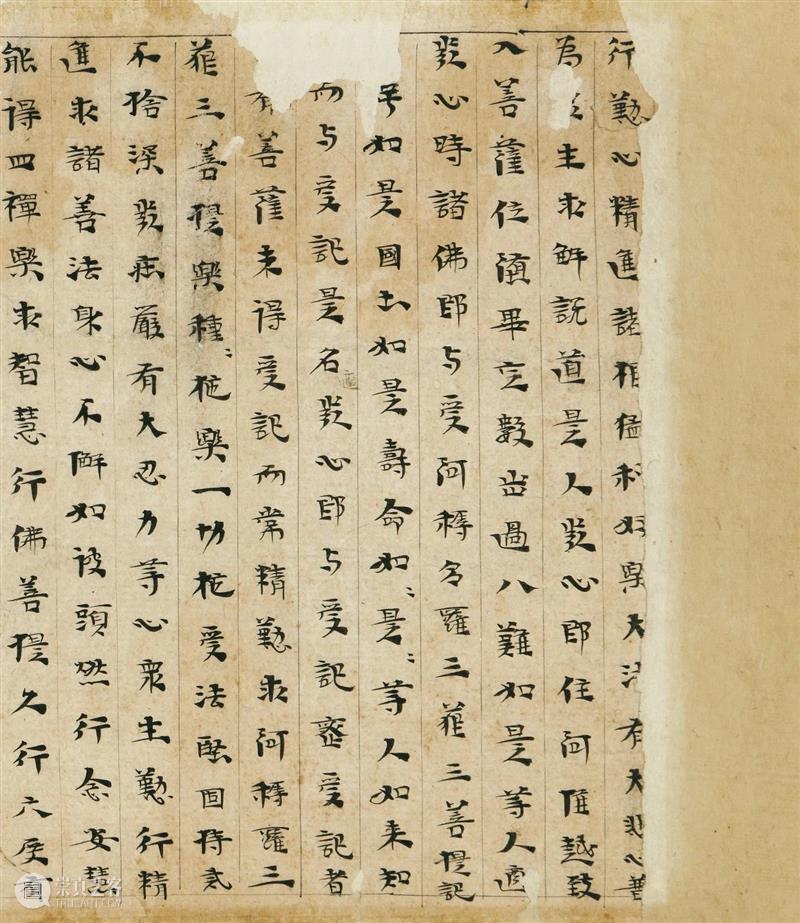 行懃心精進諸根猛利好樂大法有大悲心普
為生求解說道是人發心即住阿惟越致
入菩薩位墮畢定數出過八難如是等人適
發心時諸佛即与受阿耨多羅三藐三菩提記
号如是國土如是壽命如〻是〻等人如来知
而与受記是名發心即与受記密受記者
有菩薩未得受記而常精懃求阿耨羅三
藐三菩提樂種〻施樂一切施受法堅固持戒
不捨深發莊嚴有大忍力等心衆生懃行精
進求諸善法身心不懈如被頭然行念安慧
能得四禪樂求智慧行佛菩提久行六度
崇真艺客